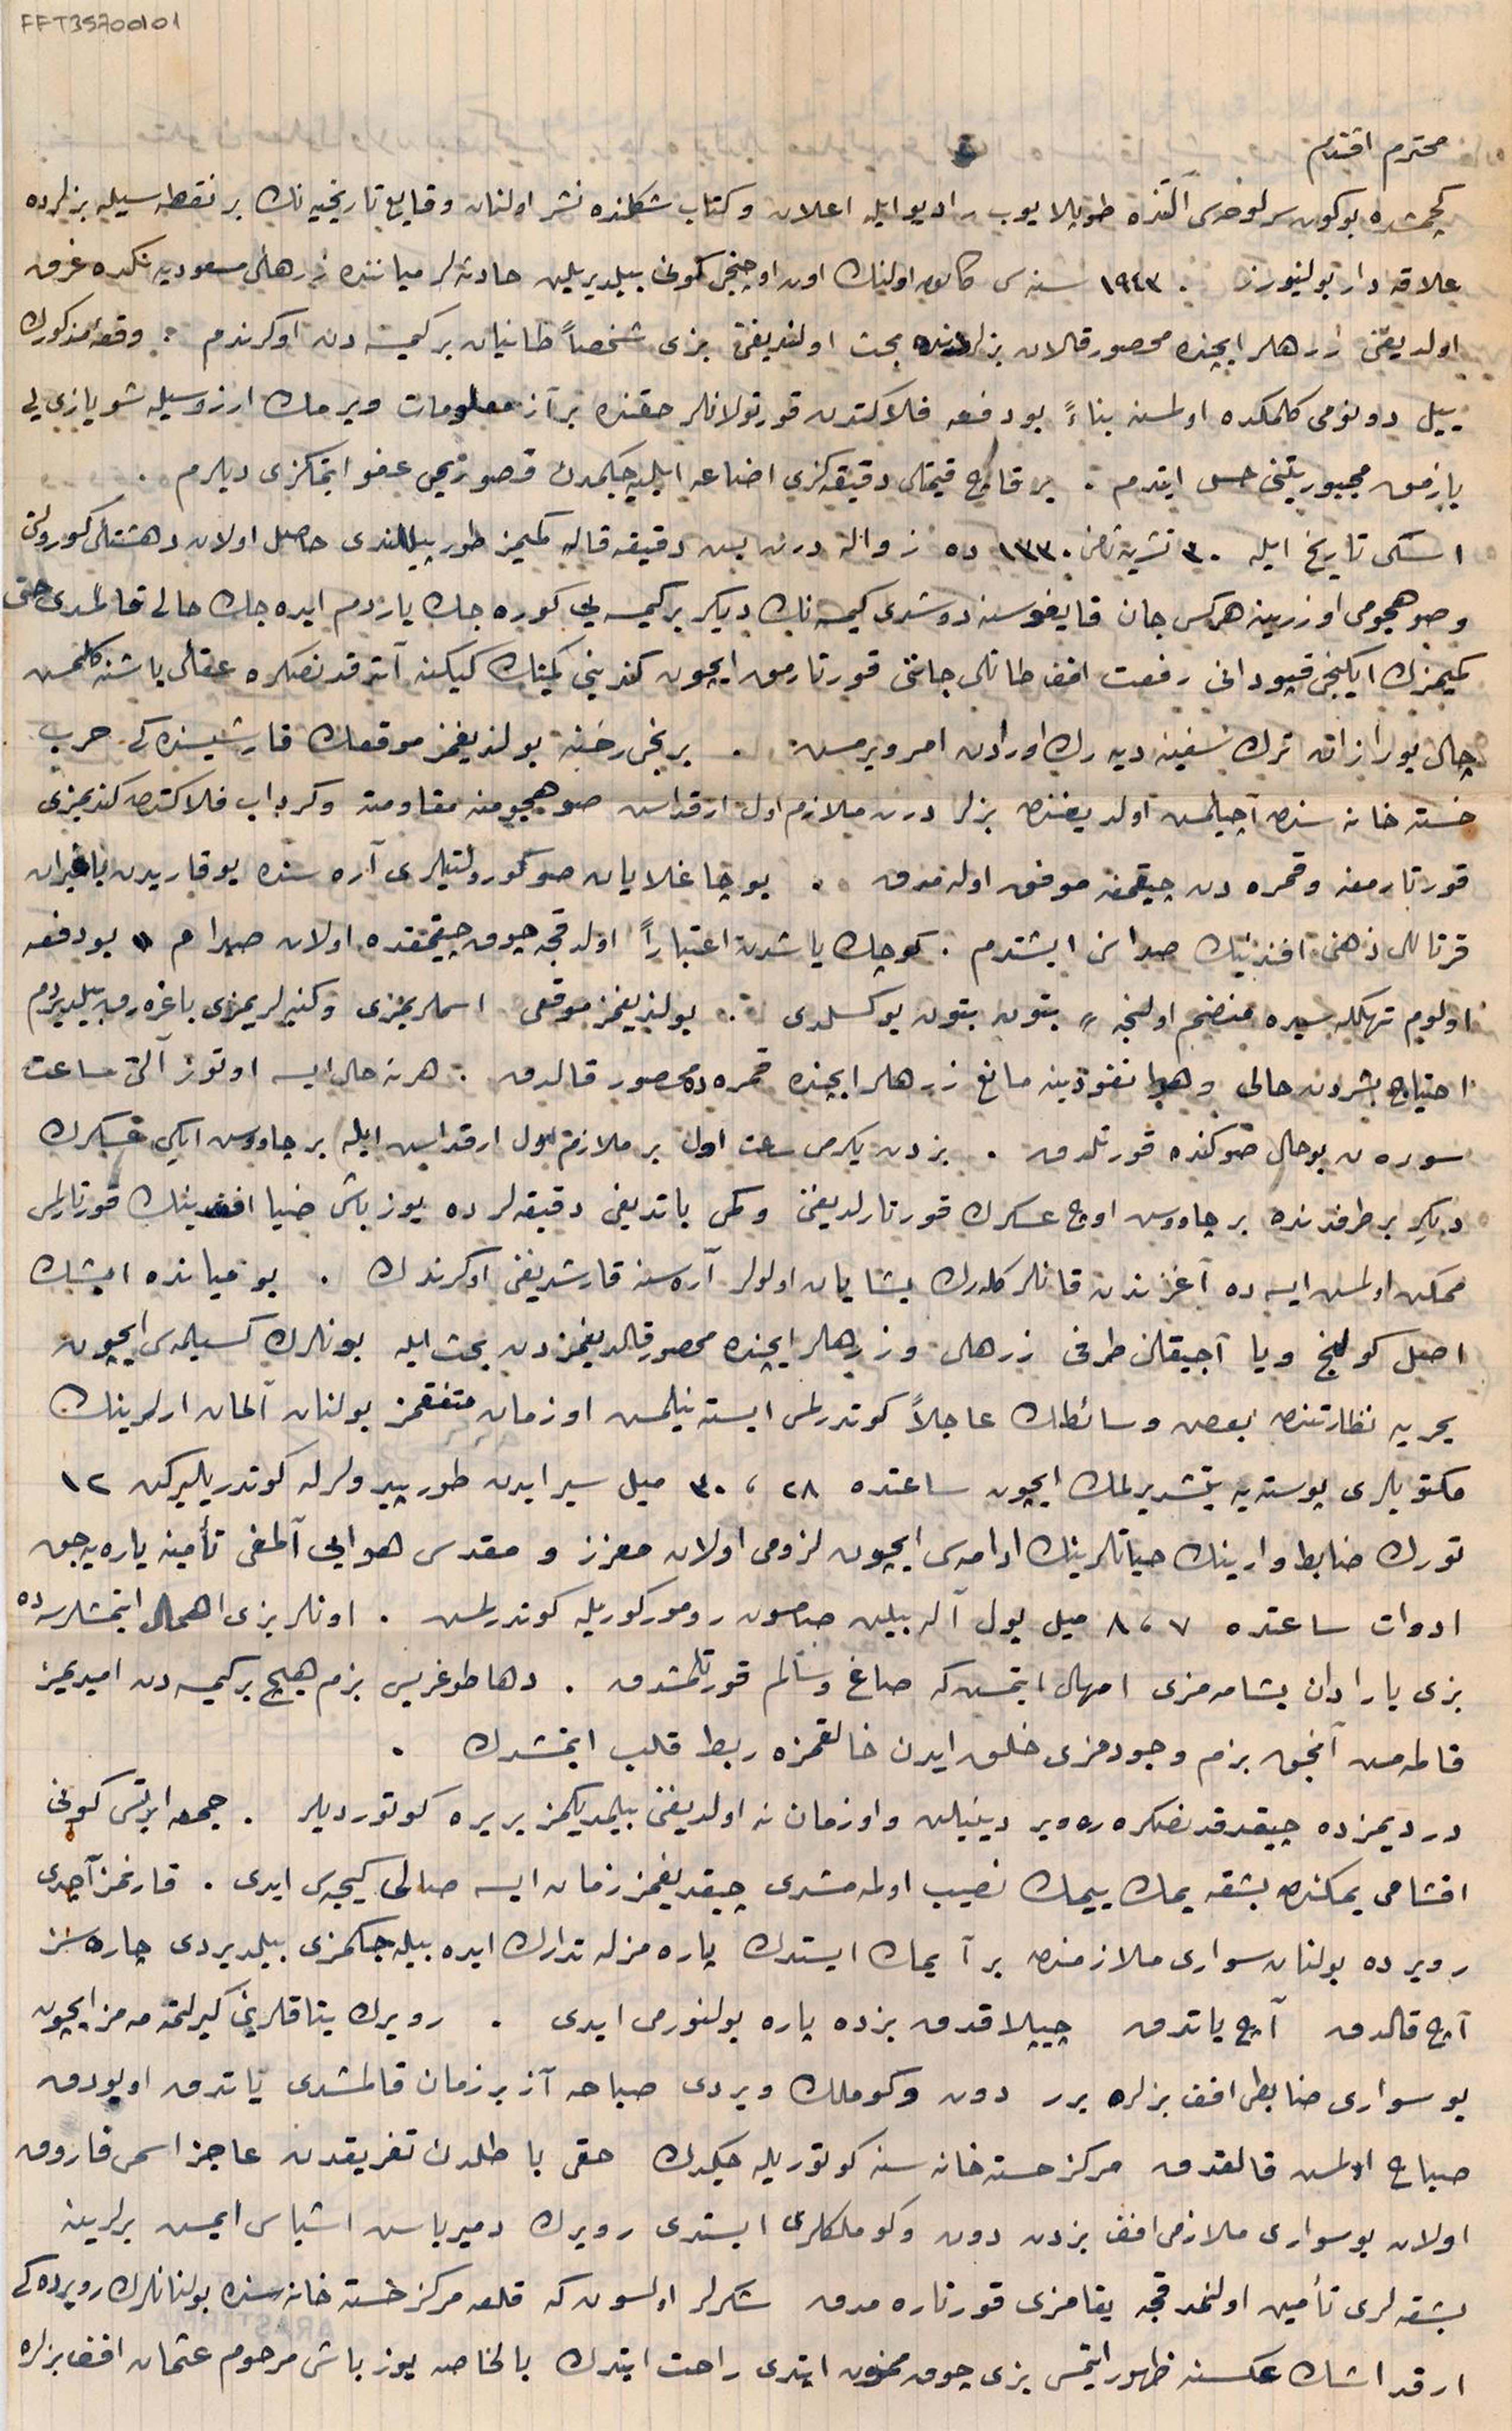 FFT35700101
محترم افندم
كچمشده بوكون سرلوحه‌سی آلتنده طوپلایوب رادیو ایله اعلان و كتاب شكلنده نشر اولنان وقایع تاریخیه‌نك بر نقطه‌سیله بزلرده
علاقه‌دار بولنیورز . ١٩٤٣ سنه‌سی كانون اولنك اون اوچنجی كونی بیلدیریلن حادثه‌لر میاننده زرهلی مسعودیه‌نك ده غرق
اولدیغنی زرهلر ایچنده محصور قالان بزلردنده بحث اولندیغنی بزی شخصاً طانیان بر كیمسه‌دن اوكرندم . وقعهٔ مذكورك
ییل دونومی كلمكده اولمسنه بناءً بو دفعه فلاكتدن قورتولانلر حقنده بر آز معلومات ویرمك آرزوسیله شو یازی یی
یازمق مجبوریتنی حس ایتدم . بر قاچ قیمتلی دقیقه‌كزی اضاعه ایلیه‌جكمدن قصوریمی عفو ایتمكزی دیلرم .
اسكی تاریخ ایله ٣٠ تشرین ثانی ١٣٣٠ ده زواله درت بش دقیقه قاله كمیمز طورپیللندی حاصل اولان دهشتلی كورولتی
و صو هجومی اوزرینه هركس جان قایغوسنه دوشدی كیمسه‌نك دیكر بر كیمسه یی كوره‌جك یاردم ایده‌جك حالی قالمدی حتی
كمیمزك ایكنجی قپودانی رفعت افندی طاتلی جاننی قورتارمق ایچون كندینی كمینك آتدقدنصكره عقلی باشنه كلمس
بوراز آن ترك سفینه دیه‌رك اورادن امر ویرمش . برنجی رخنه بولندیغمز موقعك قارشیسنده‌كی حرب
خسته خانه سنده آچیلمش اولدیغنده بزلر درت ملازم اول ارقداش صو هجومنه مقاومت و كرداب فلاكتدن كندیمزی
قورتارمغه و قمره‌دن چیقمغه موفق اوله‌مدق . بو چاغلایان صو كورولتیلری آره‌سنده یوقاریدن باغیران
قرتاللی ذهنی افندینك صداسنی ایشتدم . كوچك یاشدن اعتباراً اولدقجه چوق چیقمقده اولان صدام بو دفعه
اولوم تهلكه‌سیده منضم اولنجه بتون بتون یوكسلدی . بولندیغمز موقعی اسملریمزی و كندیلریمزی باغره‌رق بیلدیردم
احتیاج بشردن خالی و هوا نفوذینه مانع زرهلر ایچنده قمره‌ده محصور قالدق . هر نه حال ایسه اوتوز آلتی ساعت
سوره‌ن بو حال صوكنده قورتلدق . بزدن یكرمی ساعت اول بر ملازم اول ارقداش ایله بر چاووش ایكی عسكرك
دیكر بر طرفدنده بر چاووش اوچ عسكرك قورتارلدیغنی و كمی باتدیغی دقیقه‌لرده یوزباشی ضیا افندینك قورتارلمسی
ممكن اولمش ایسه‌ده آغزندن قانلر كله‌رك یشایان اولولر آره‌سنه قارشدیغنی اوكرندك . بو میانده ایشك
اصل كولنج ویا آجیقلی طرفی زرهلی و زرهلر ایچنده محصور قالدیغمزدن بحث ایله بونلرك كسیلمه‌سی ایچون
بحریه نظارتنده بعض وسائطك عاجلاً كوندرلمسی ایسته‌نیلمش او زمان متفقمز بولنان آلمان ارلرینك
مكتوبلری پوسته‌یه یتشدیرلمك ایچون ساعتده ٢٨ ، ٣٠ میل سیر ایدن طورپیدولرله كوندریلیركن ١٢
تورك ضابط وارینك حیاتلرینك ادامه‌سی ایچون لزومی اولان معزز و مقدس هوایی آلمغی تأمینه یارایه‌جق
ادوات ساعتده ٧ ، ٨ میل یول آله بیلن صامسون روموركوریله كوندرلمش . اونلر بزی اهمال ایتمشلرسه‌ده
بزی یارادان یشامه‌مزی امهال ایتمش كه صاغ و سالم قورتلمشدق . دها طوغریسی بزم هیچ بر كیمسه‌دن امیدیمز
قالمه‌مش آنجق بزم وجودمزی خلق ایدن خالقمزه ربط قلب ایتمشدك .
دردیمزده چیقدقدنصكره ره‌ویر دینیلن و او زمان نه اولدیغنی بیلمدیكمز بر یره كوتوردیلر . جمعه ایرتسی كونی
اقشامی یمكنده بشقه یمك ییمك نصیب اولمه‌مشدی چیقدیغمز زمان ایسه صالی كیجه‌سی ایدی . قارنمز آچدی
رویرده بولنان سواری ملازمنده بر آز یمك ایستدك پاره‌مزله تدارك ایده بیله‌جكمزی بیلدیردی چاره‌سز
آچ قالدق آچ یاتدق چیپلاقدق بزده پاره بولنورمی ایدی . رویرك یتاقلرینی كیرلتمه‌مه‌مز ایچون
بو سواری ضابطی افندی بزلره برر دون و كوملك ویردی صباحه آز بر زمان قالمشدی یاتدق اویودق
صباح اولمش قالقدق مركز خسته خانه سنه كوتوریله‌جكدك حقی باطلدن تفریقدن عاجز اسمی فاروق
اولان بو سواری ملازمی افندی بزدن دون و كوملكلری ایستدی رویرك دمیرباش اشیاسی ایمش یرلرینه
بشقه‌لری تأمین اولنمدقجه یقامزی قورتاره‌مدق شكرلر اولسون كه قلعه مركز خسته خانه سنده بولنانلرك رویرده‌كی
ارقداشك عكسنه ظهور ایتمسی بزی چوق ممنون ایتدی راحت ایتدك بالخاصه یوزباشی مرحوم عثمان افندی بزلره